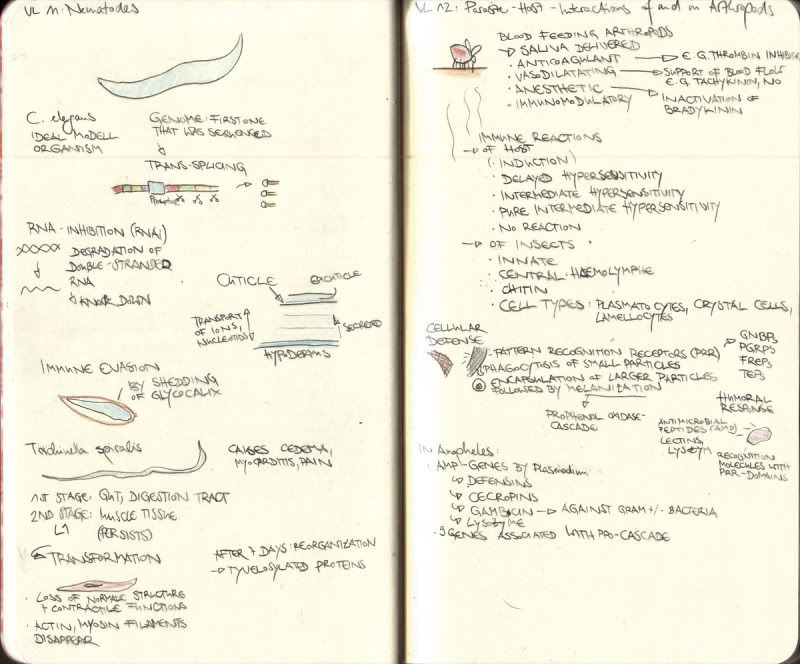 VL 11: Nematodes
C. elegans
IDEAL MODELL
ORGANISM
GENOME: FIRST ONE
THAT WAS SEQUENCED
TRANS-SPLICING
RNA-INHIBITION (RNAi)
DEGRADATION OF
DOUBLE-STRANDED
RNA
KNOCK DOWN
CUTICLE
EPICUTICLE
TRANSPORT
OF IONS,
NUCLEOTIDS
SECRETED
HYPODERMIS
IMMUNE EVASION
BY SHEDDING
OF GLYCOCALIX
Trichinella spiralis
CAUSES OEDEMA,
MYOCARDITIS, PAIN
1ST STAGE: GUT, DIGESTION TRACT
2ND STAGE: MUSCLE TISSUE
(PERSISTS)
TRANSFORMATION
AFTER 7 DAYS: REORGANIZATION
→ TYVELOSYLATED PROTEINS
· LOSS OF NORMALE STRUCTURE
+ CONTRACTILE FUNCTIONS
· ACTIN, MYOSIN FILAMENTS
DISAPPEAR
VL 12: Parasite-Host-Interactions of and in Arthropods
BLOOD FEEDING ARTHROPODS
→ SALIVA DELIVERED
· ANTICOAGULANT → E.G. THROMBIN INHIBITER
· VASODILATATING → SUPPORT OF BLOOD FLOW
E.G. TACHYKININ, NO
· ANESTHETIC → INACTIVATION OF
BRADYKININ
· IMMUNOMODULATORY
IMMUNE REACTIONS
→ OF HOST
(· INDUCTION)
· DELAYED HYPERSENSITIVITY
· INTERMEDIATE HYPERSENSITIVITY
· PURE INTERMEDIATE HYPERSENSITIVITY
· NO REACTION
→ OF INSECTS
· INNATE
· CENTRAL: HAEMOLYMPHE
· CHITIN
· CELL TYPES: PLASMATOCYTES, CRYSTAL CELLS,
LAMELLOCYTES
CELLULAR
DEFENSE
· PATTERN RECOGNITION RECEPTORS (PRR)
PHAGOCYTOSIS OF SMALL PARTICLES
ENCAPSULATION OF LARGER PARTICLES
FOLLOWED BY MELANIZATION
PROPHENOL OXIDASE-
CASCADE
GNBPs
PGRPs
FREPs
TEPs
HUMORAL
RESPONSE
ANTIMICROBIAL
PEPTIDES (AMP)
LECTINS,
LYSOZYM
RECOGNITION
MOLECULES WITH
PRR-DOMAINS
IN Anopheles:
· AMP-GENES BY Plasmodium
↳ DEFENSINS
↳ CECROPINS
↳ GAMBICIN → AGAINST GRAM+/- BACTERIA
↳ LYSOZYME
· 9 GENES ASSOCIATED WITH PPO-CASCADE